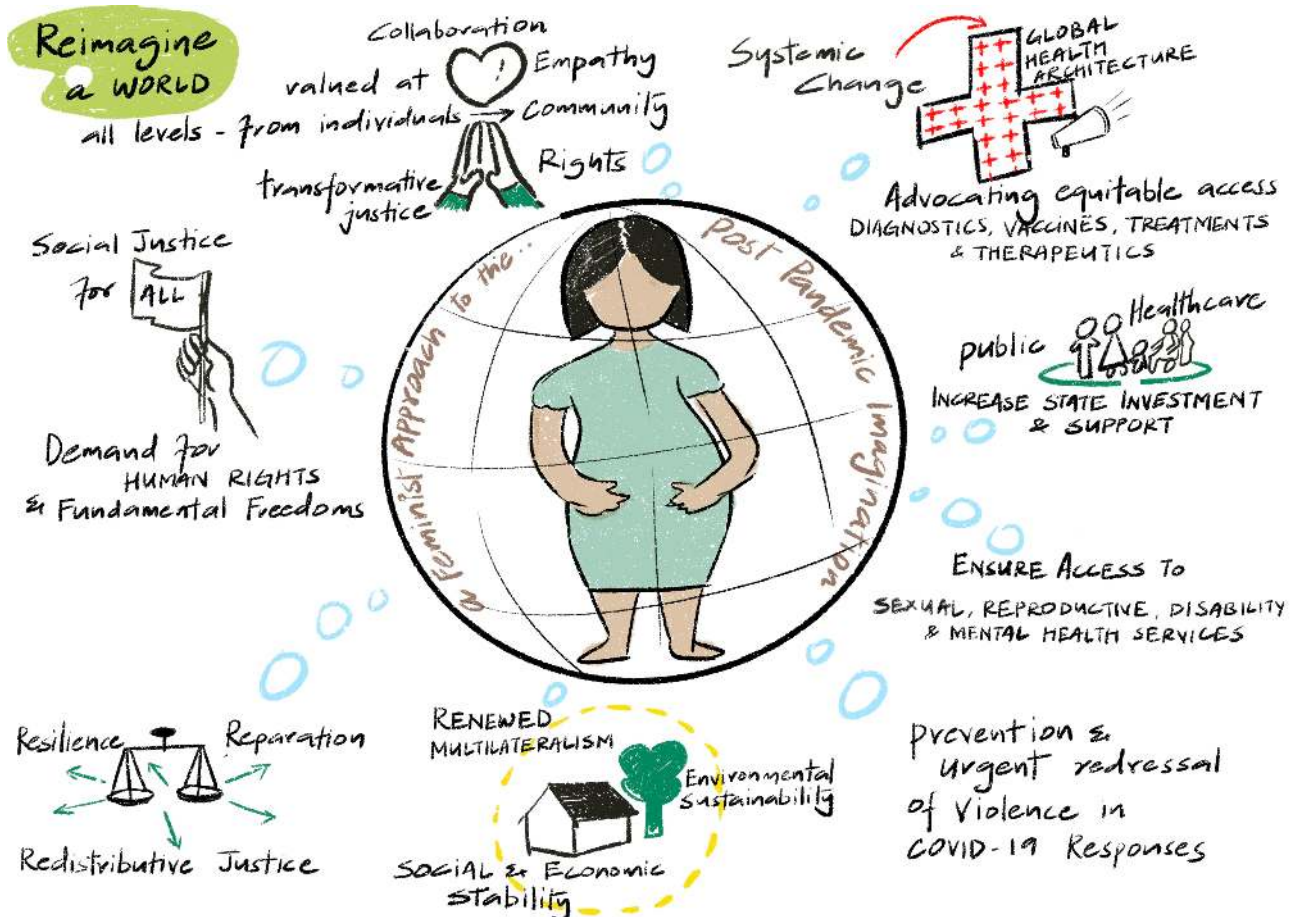 Reimagine
a WORLD
Collaboration
valued at
all levels - from individuals → Community
Empathy
Rights
transformative
justice
Systemic
Change
GLOBAL
HEALTH
ARCHITECTURE
Advocating equitable access
DIAGNOSTICS, VACCINES, TREATMENTS
& THERAPEUTICS
Social Justice
for ALL
Demand for
HUMAN RIGHTS
& Fundamental Freedoms
a Feminist Approach to the...
Post Pandemic Imagination
public Healthcare
INCREASE STATE INVESTMENT
& SUPPORT
ENSURE ACCESS TO
SEXUAL, REPRODUCTIVE, DISABILITY
& MENTAL HEALTH SERVICES
Resilience Reparation
Redistributive Justice
RENEWED
MULTILATERALISM
Environmental
Sustainability
SOCIAL & Economic
Stability
Prevention &
urgent redressal
of Violence in
COVID-19 Responses